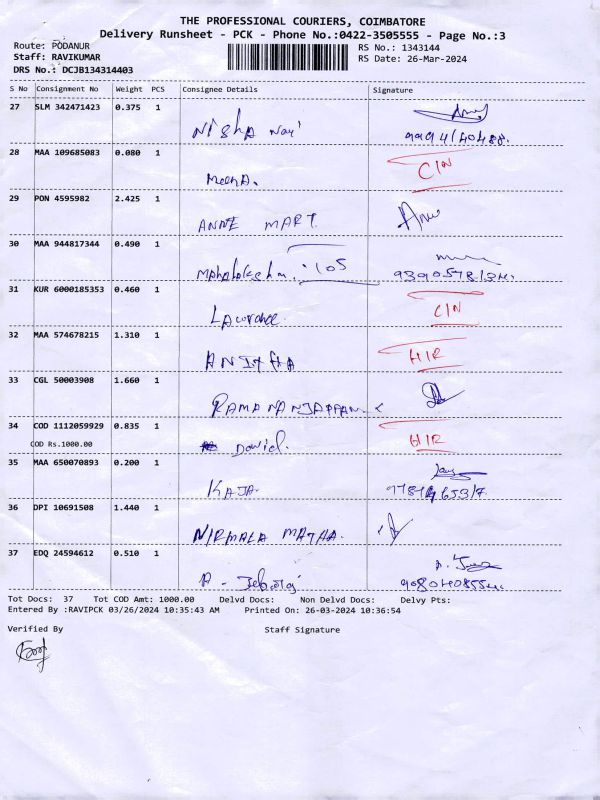 THE PROFESSIONAL COURIERS, COIMBATORE
Delivery Runsheet - PCK - Phone No.:0422-3505555 - Page No.:3
Route: PODANUR RS No.: 1343144
Staff: RAVIKUMAR RS Date: 26-Mar-2024
DRS No.: DCJB134314403
S No Consignment No Weight PCS Consignee Details Signature
27 SLM 342471423 0.375 1
Nisha
28 MAA 109685083 0.080 1 CIN
Meena.
29 PON 4595982 2.425 1
ANNE MART.
30 MAA 944817344 0.490 1
105
31 KUR 6000185353 0.460 1 CIN
Lawrance.
32 MAA 574678215 1.310 1 HIR
ANItHA
33 CGL 50003908 1.660 1
34 COD 1112059929 0.835 1 HIR
COD Rs.1000.00
35 MAA 650070893 0.200 1
KAJA.
36 DPI 10691508 1.440 1
NIRMALA MATHA.
37 EDQ 24594612 0.510 1
Tot Docs: 37 Tot COD Amt: 1000.00 Delvd Docs: Non Delvd Docs: Delvy Pts:
Entered By :RAVIPCK 03/26/2024 10:35:43 AM Printed On: 26-03-2024 10:36:54
Verified By Staff Signature